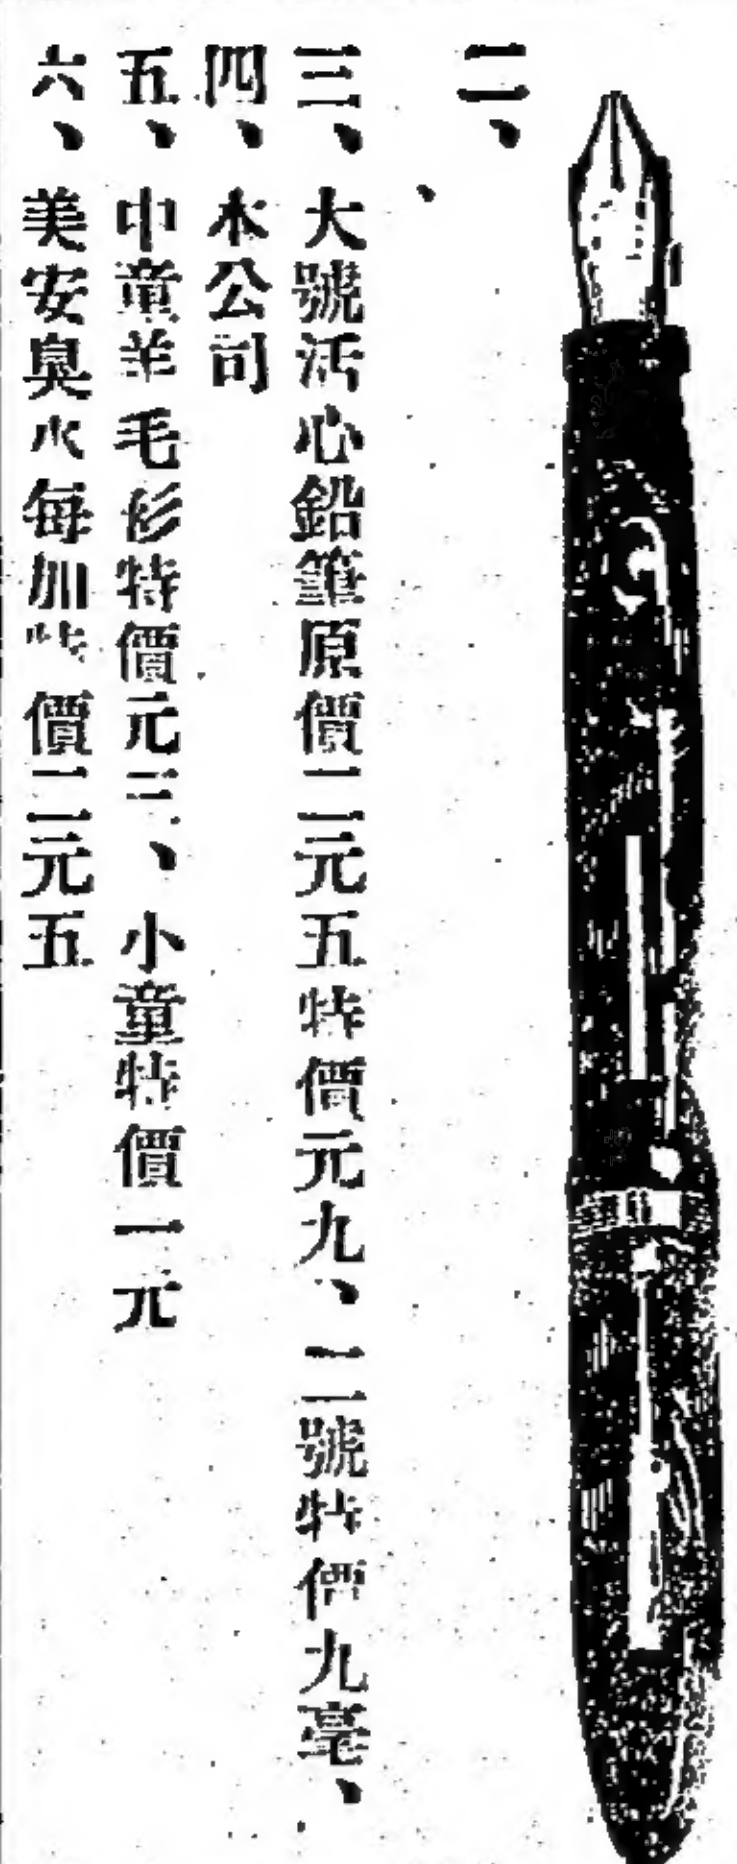 二、
三、大號活心鉛筆原價二元五特價元九、二號特價九毫、
四、本公司
五、中童羊毛衫特價元三、小童特價一元
六、美安臭水每加特價二元五